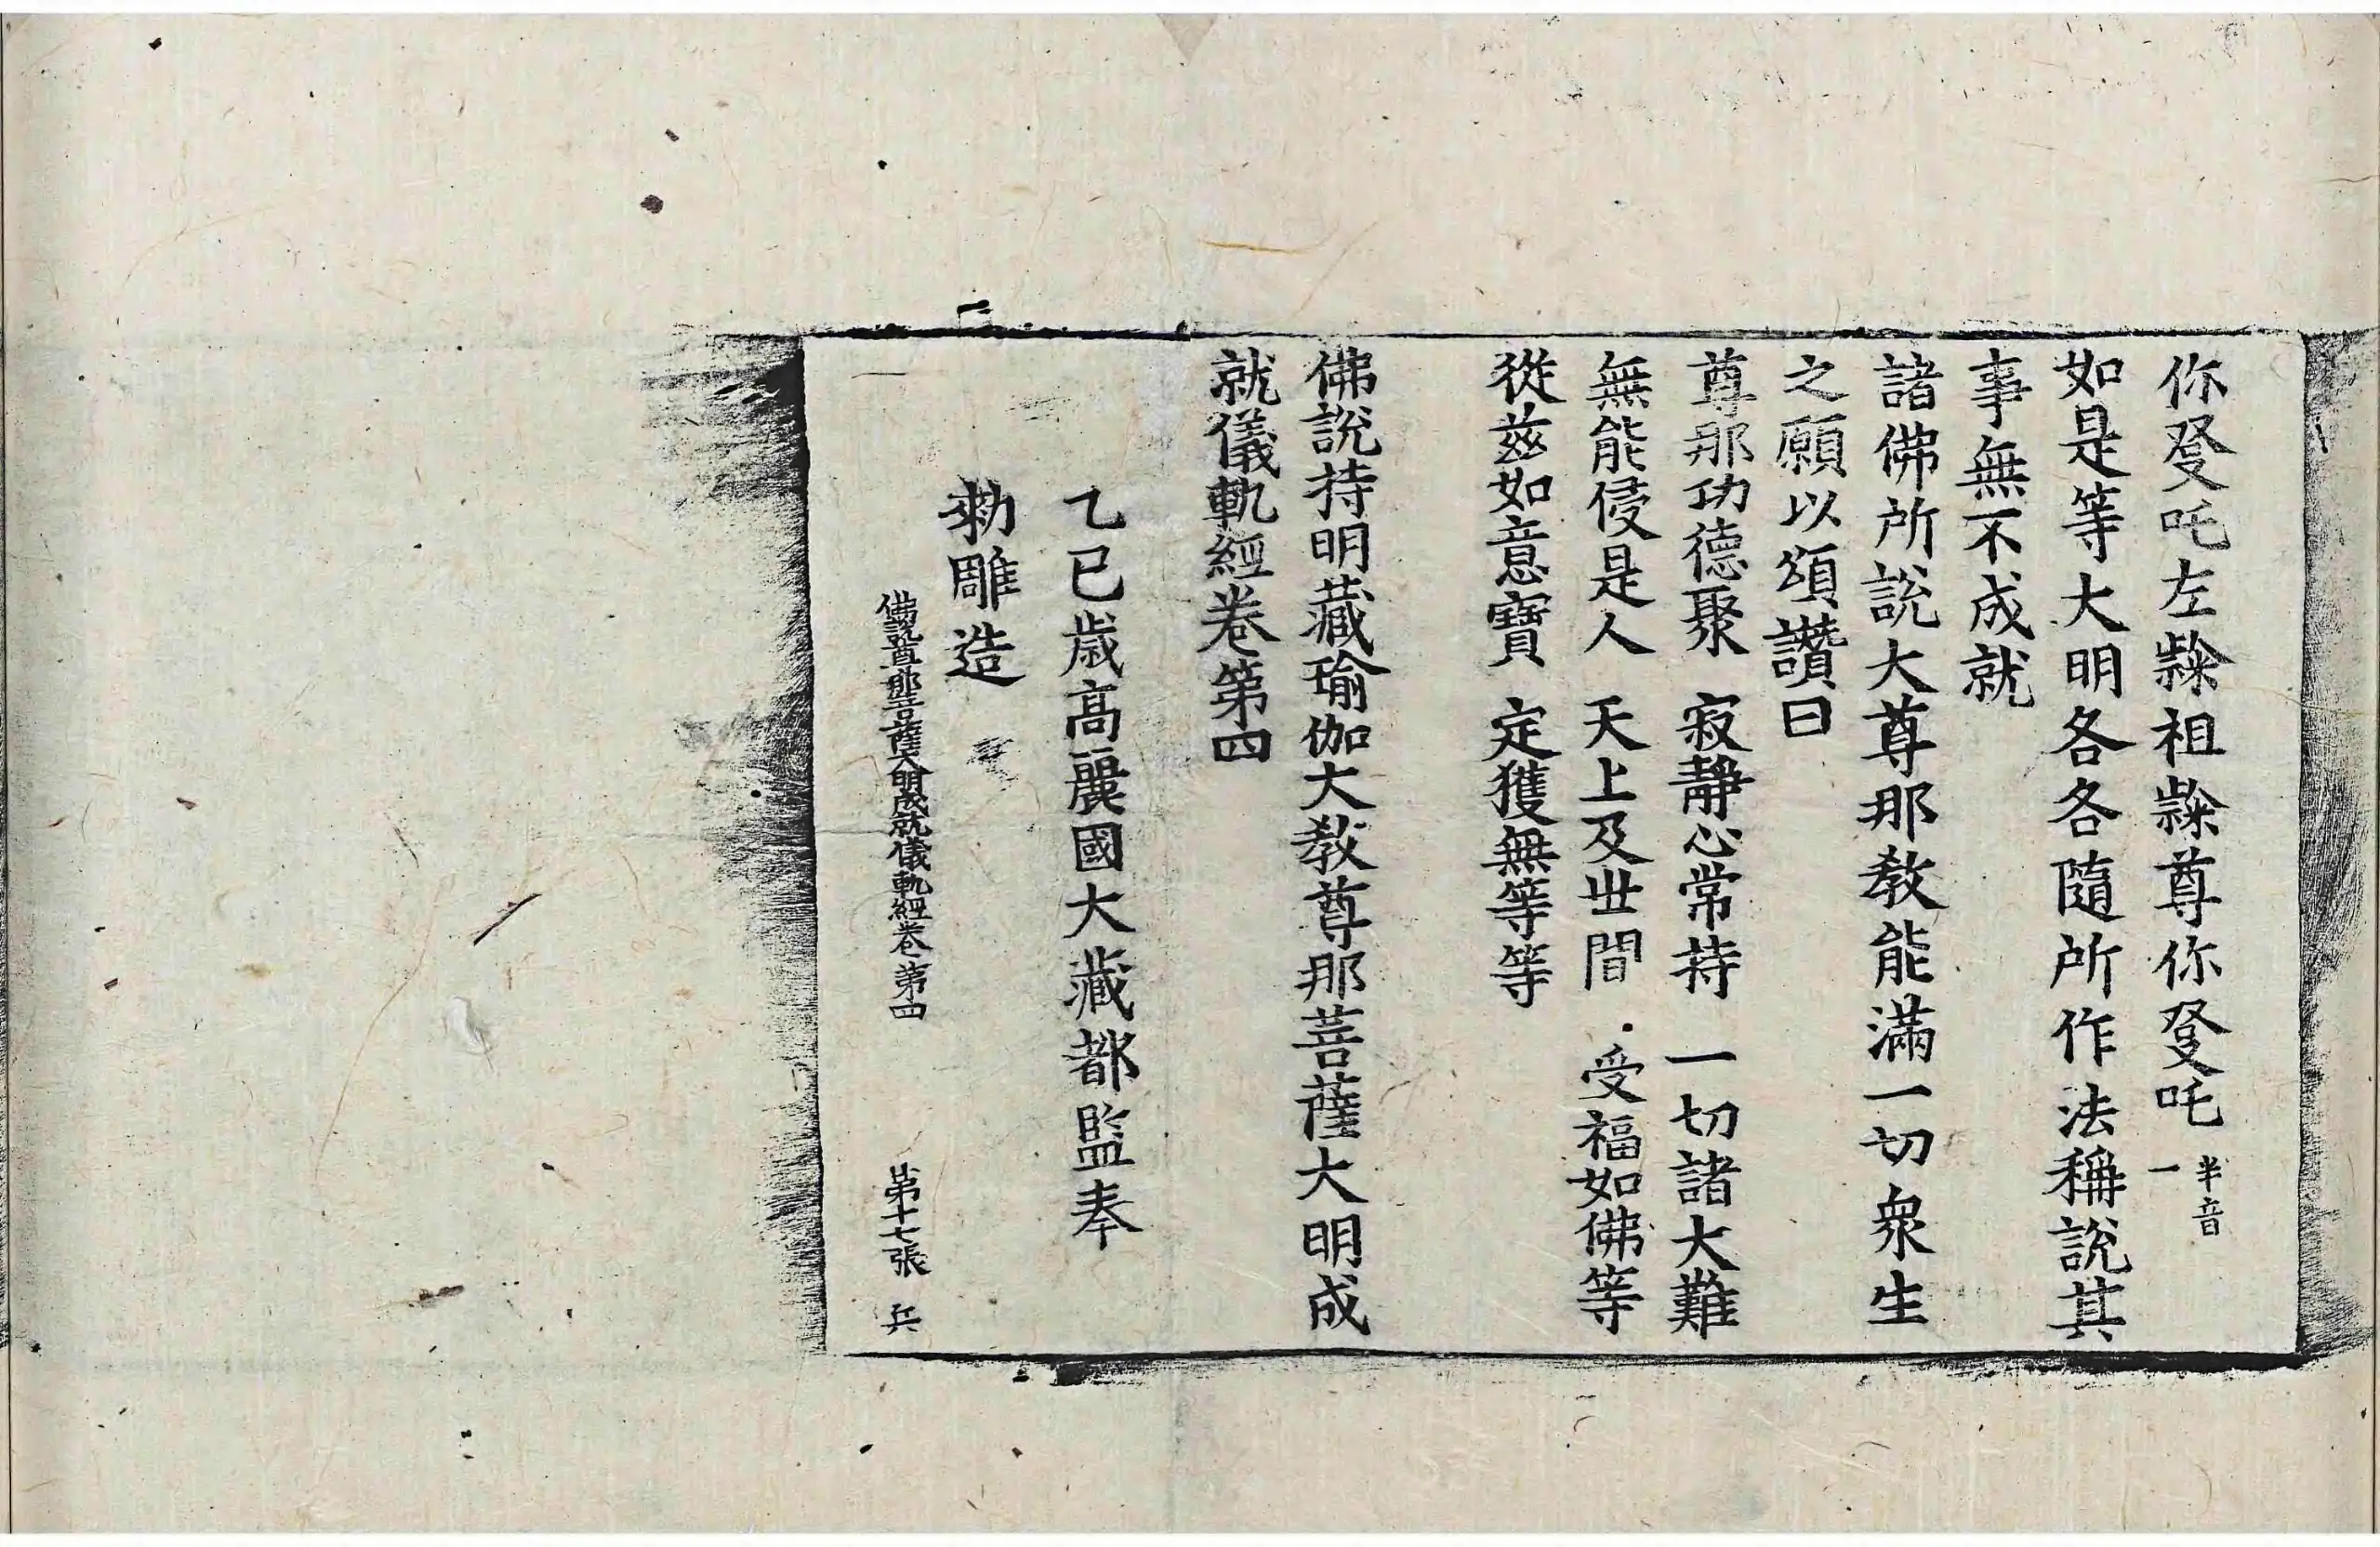 你發吒左隸祖隸尊你發吒半音一
如是等大明各各隨所作法稱說其
事無不成就
諸佛所說大尊那教能滿一切衆生
之願以頌讚曰
尊那功德聚 寂靜心常持 一切諸大難
無能侵是人 天上及世間 受福如佛等
從茲如意寶 定獲無等等
佛說持明藏瑜伽大教尊那菩薩大明成
就儀軌經卷第四
乙巳歲高麗國大藏都監奉
勑雕造
佛說尊那菩薩大明成就儀軌經卷第四 第十七張 兵